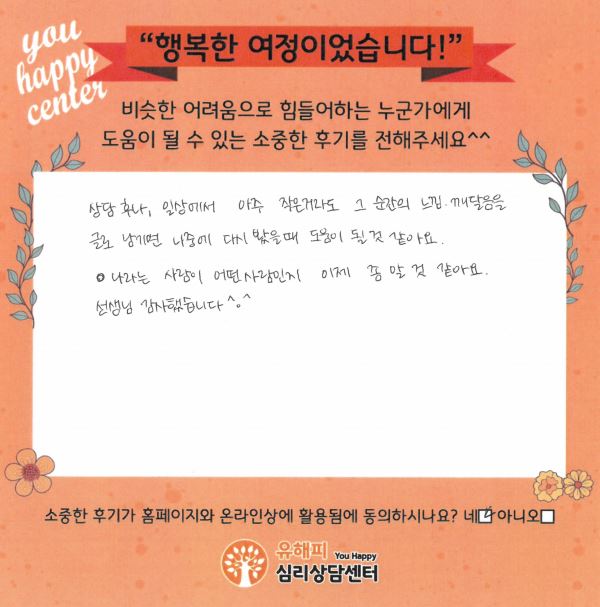 you
happy
center
“행복한 여정이었습니다!”
비슷한 어려움으로 힘들어하는 누군가에게
도움이 될 수 있는 소중한 후기를 전해주세요^^
상담 후나, 일상에서 아주 작은거라도 그 순간의 느낌. 깨달음을
글로 남기면 나중에 다시 봤을때 도움이 될 것 같아요.
나라는 사람이 어떤사람인지 이제 좀 알 것 같아요.
선생님 감사했습니다 ^o^
소중한 후기가 홈페이지와 온라인상에 활용됨에 동의하시나요? 네☑아니오☐
유해피 You Happy
심리상담센터